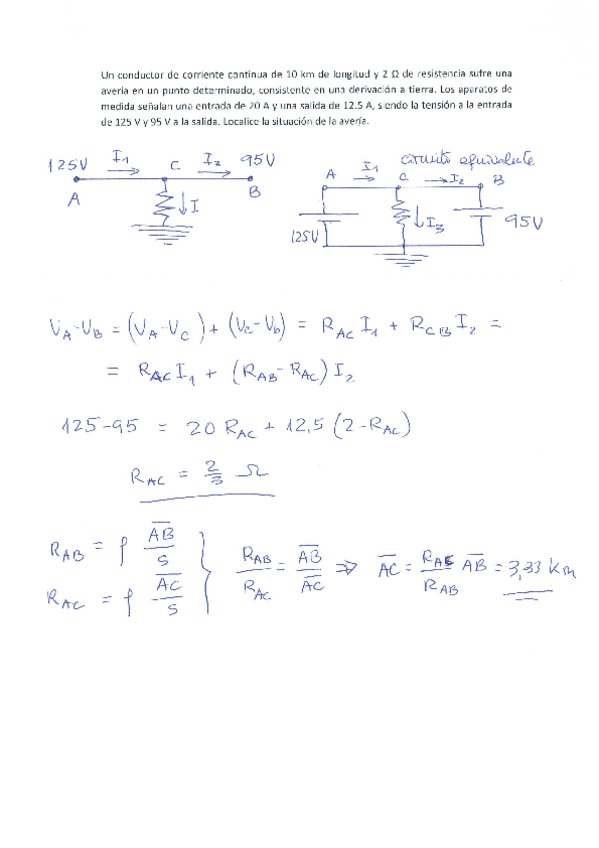 Un conductor de corriente continua de 10 km de longitud y 2 Ω de resistencia sufre una
avería en un punto determinado, consistente en una derivación a tierra. Los aparatos de
medida señalan una entrada de 20 A y una salida de 12.5 A, siendo la tensión a la entrada
de 125 V y 95 V a la salida. Localice la situación de la avería.
125V I₁ C I₂ 95V
A ↓I B
circuito equivalente
A I₁ C I₂ B
125V ↓I₃ 95V
V_A-V_B = (V_A-V_C) + (V_C-V_b) = R_AC I₁ + R_CB I₂ =
= R_AC I₁ + (R_AB - R_AC) I₂
125-95 = 20 R_AC + 12,5 (2-R_AC)
R_AC = 2/3 Ω
R_AB = ρ AB/S
R_AC = ρ AC/S
R_AB/R_AC = AB/AC ⇒ AC = R_AC/R_AB AB = 3,33 km